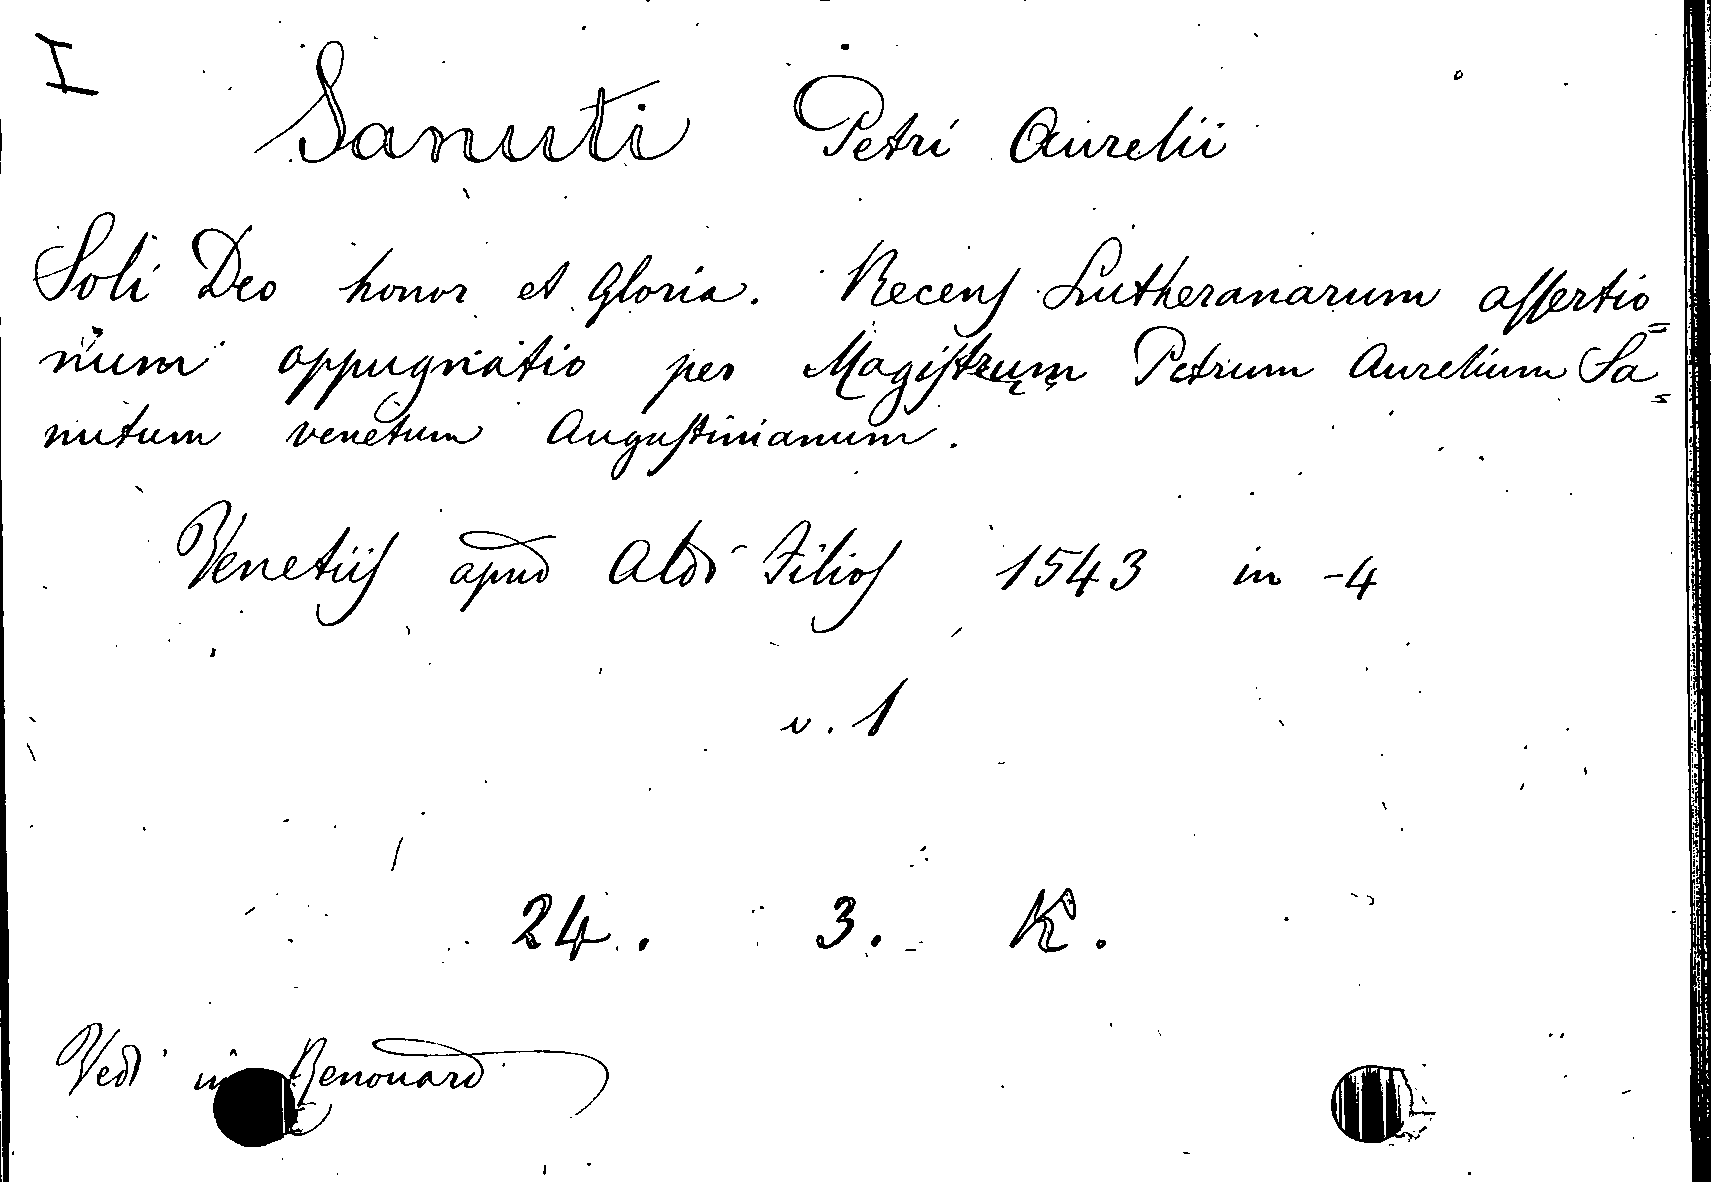 I
Sanuti Petri Aurelii
Soli Deo honor et Gloria. Recens Lutheranarum assertio=
num oppugnatio per Magistrum Petrum Aurelium Sa=
nutum venetum Augustinianum.
Venetiis apud Aldi Filios 1543 in -4
v. 1
24. 3. K.
Vedi in Renouard